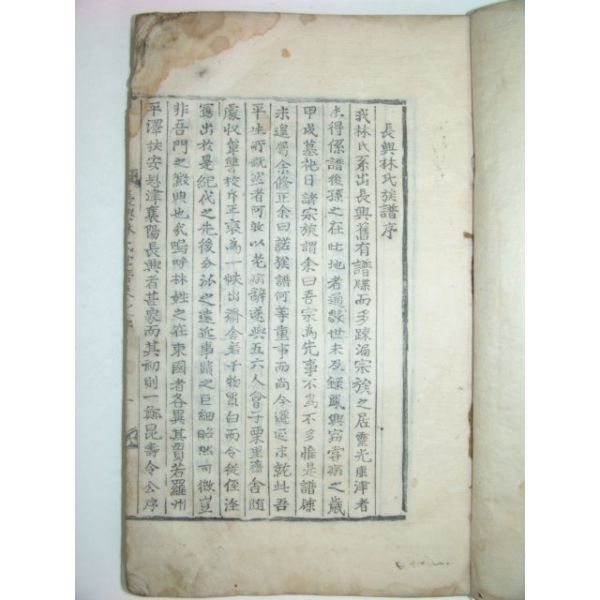 長興林氏族譜序
我林氏系出長興舊有譜牒而多踈漏宗族之居靈光康津者
未得係譜後孫之在此地者過數世未及錄鳳興竊嘗病之歲
甲戌墓祀日諸宗族謂余曰吾宗爲先事不爲不多惟是譜牒
未遑屬余修正余曰諾族譜何等重事而尚今遷延未就此吾
平生所慨然者何敢以老病辭遂與五六人會于栗里齋舍隨
處收單讐校正寫爲一帙出齋舍若干物質白而令從侄洼
寫出於是紀代之先後分派之遠近事蹟之巨細昭然可徵豈
非吾門之盛典也哉嗚呼林姓之在東國者各異其貫若羅州
平澤扶安蔚津襄陽長興者甚衆而其初則一